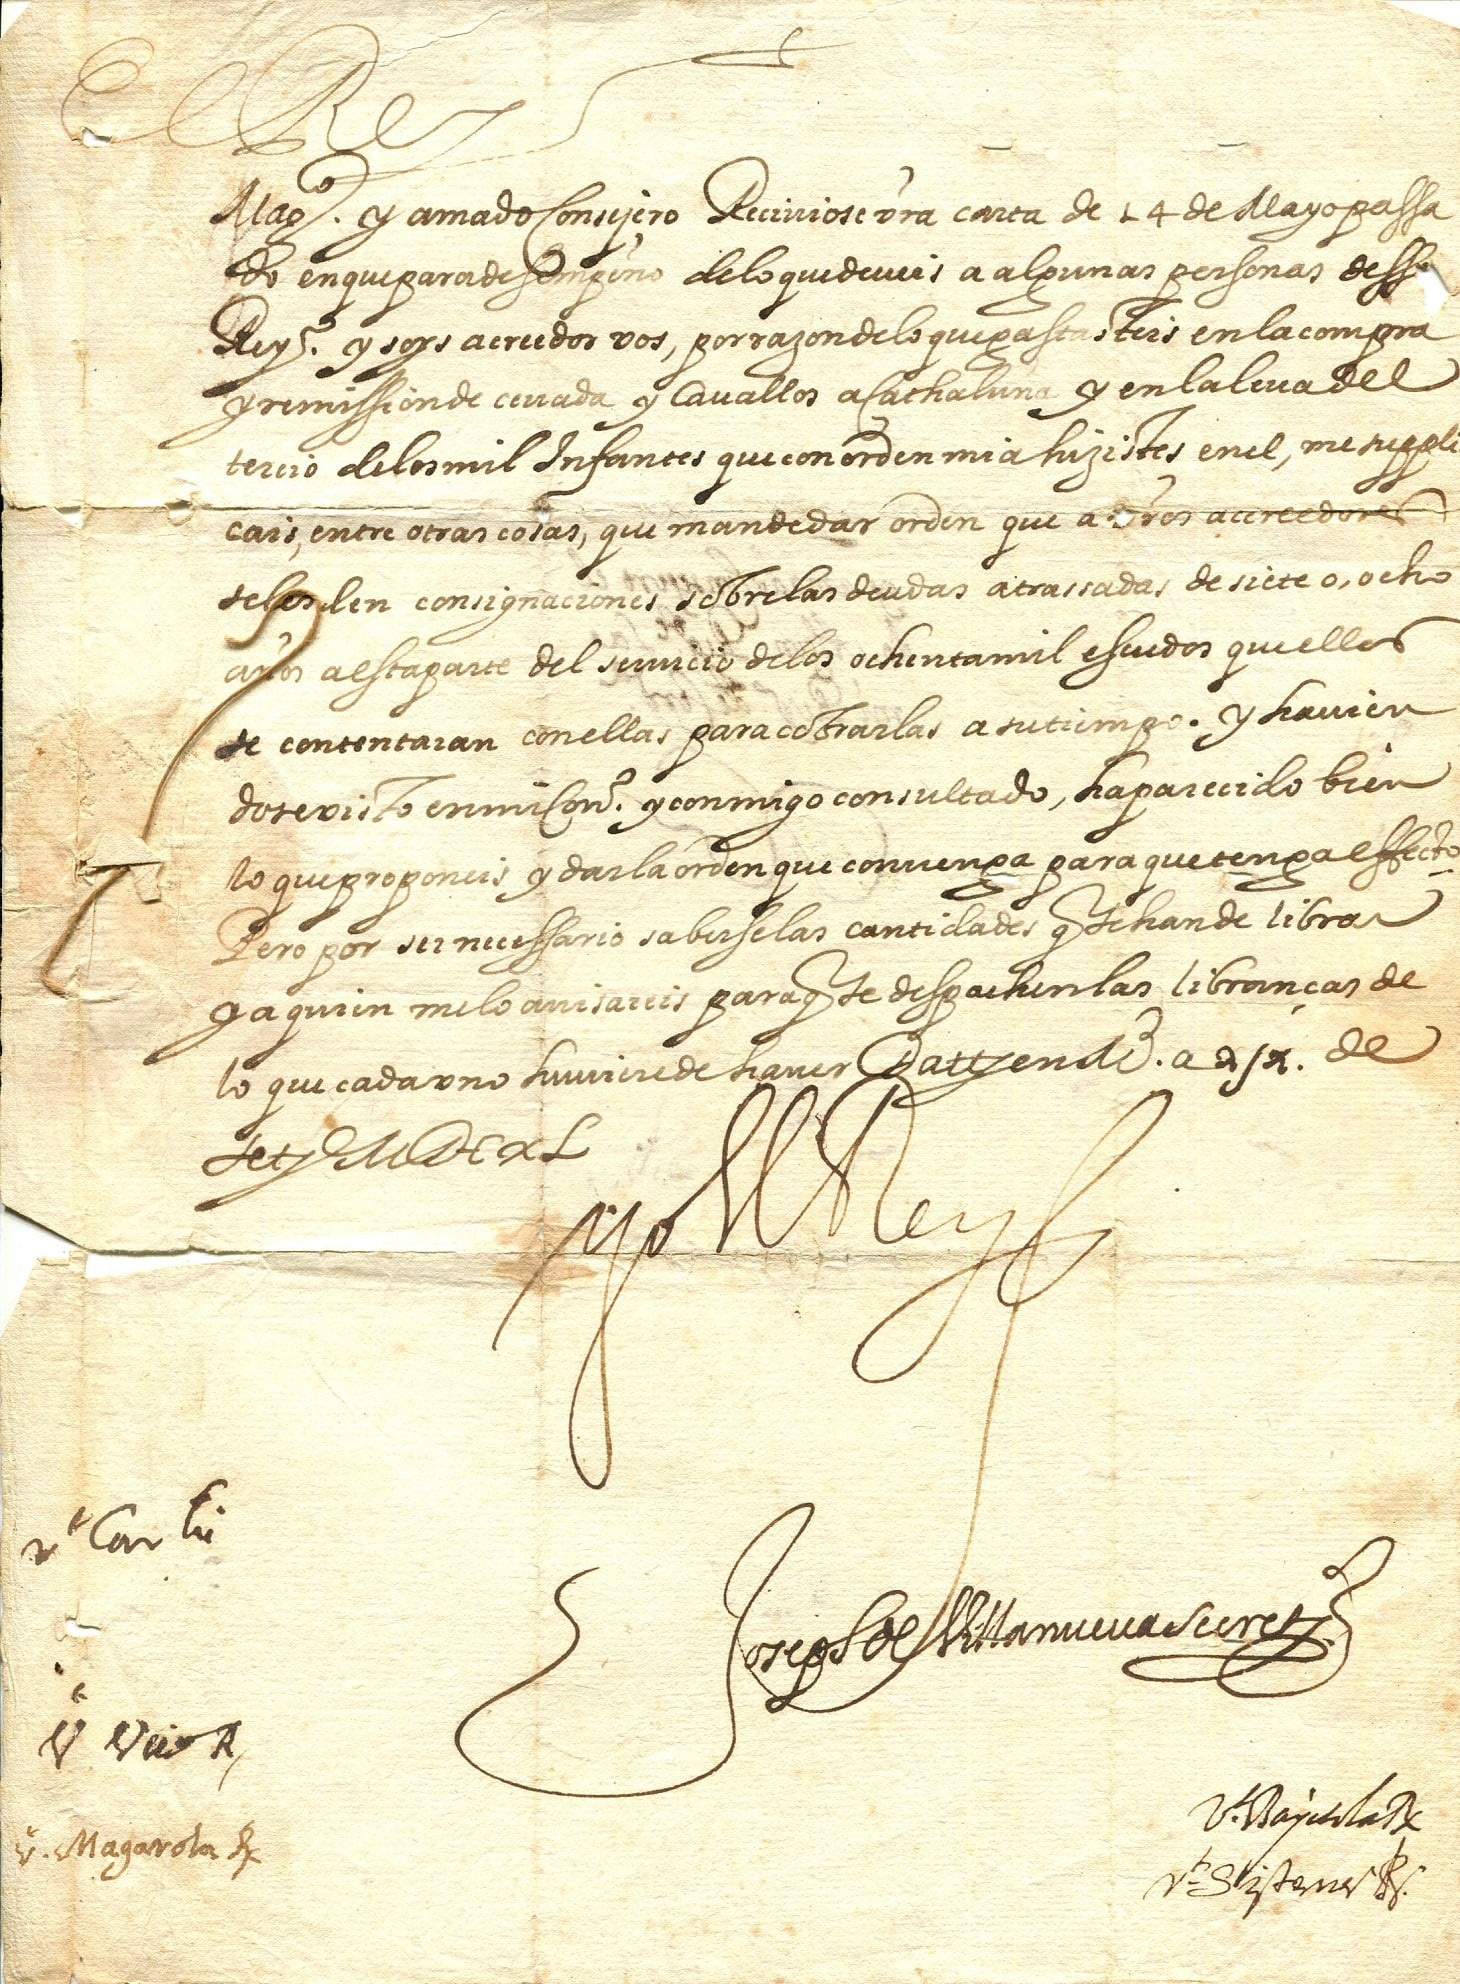 El Rey
Magco. y amado Consejero Reciviose vra carta de 14 de Mayo passa
do en que para desempeño de lo que deveis a algunas personas desse
Reyno. y soys acreedor vos, por razon de lo que gastasteis en la compra
y remission de cevada y Cavallos a Cathaluña y en la leva del
tercio de los mil Infantes que con orden mia hizistes en el, me suppli
cais, entre otras cosas, que mande dar orden que a vros acreedores
se les den consignaciones sobre las deudas atrassadas de siete o, ocho
años a esta parte del servicio de los ochenta mil escudos que ellos
se contentaran con ellas para cobrarlas a su tiempo. y havien
dose visto en mi Conso. y conmigo consultado, ha parecido bien
lo que proponeis y dar la orden que convenga para que tenga effecto
Pero por ser necessario saberse las cantidades q se han de librar
y a quien me lo avisareis para q se despachen las libranças de
lo que cada uno huviere de haver Datt en Md. a de
Set MDCXL
yo el Rey
Joseph de Villanueva Secret
vt
vt
vt. Magarola R
vt. Bayetola R
vt. Sisternes R.